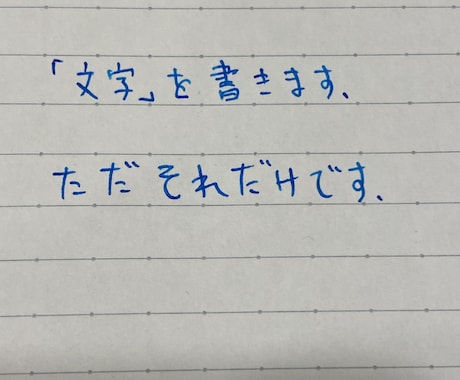 「文字」を書きます、
ただそれだけです、